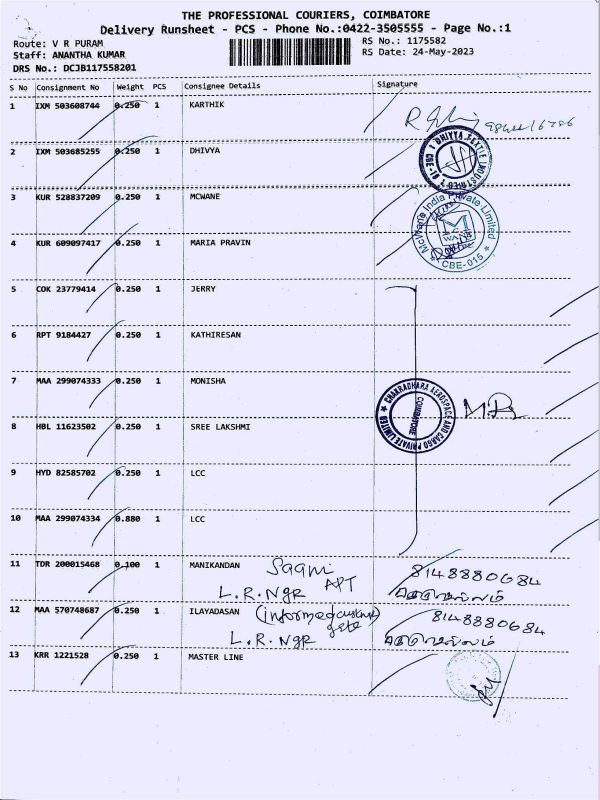 THE PROFESSIONAL COURIERS, COIMBATORE
Delivery Runsheet - PCS - Phone No.:0422-3505555 - Page No.:1
Route: V R PURAM
RS No.: 1175582
Staff: ANANTHA KUMAR
RS Date: 24-May-2023
DRS No.: DCJB117558201
S No Consignment No Weight PCS Consignee Details Signature
1 IXM 503608744 0.250 1 KARTHIK
2 IXM 503685255 0.250 1 DHIVYA
3 KUR 528837209 0.250 1 MCWANE
McWane India Private Limited
CBE-015
4 KUR 609097417 0.250 1 MARIA PRAVIN
5 COK 23779414 0.250 1 JERRY
6 RPT 9184427 0.250 1 KATHIRESAN
7 MAA 299074333 0.250 1 MONISHA
CHAKRADHARA AEROSPACE AND CARGO PRIVATE LIMITED
COIMBATORE
8 HBL 11623502 0.250 1 SREE LAKSHMI
9 HYD 82585702 0.250 1 LCC
10 MAA 299074334 0.880 1 LCC
11 TDR 200015468 0.100 1 MANIKANDAN APT 8148880684
L.R.Ngr
12 MAA 570748687 0.250 1 ILAYADASAN 8148880684
L.R.Ngr
13 KRR 1221528 0.250 1 MASTER LINE